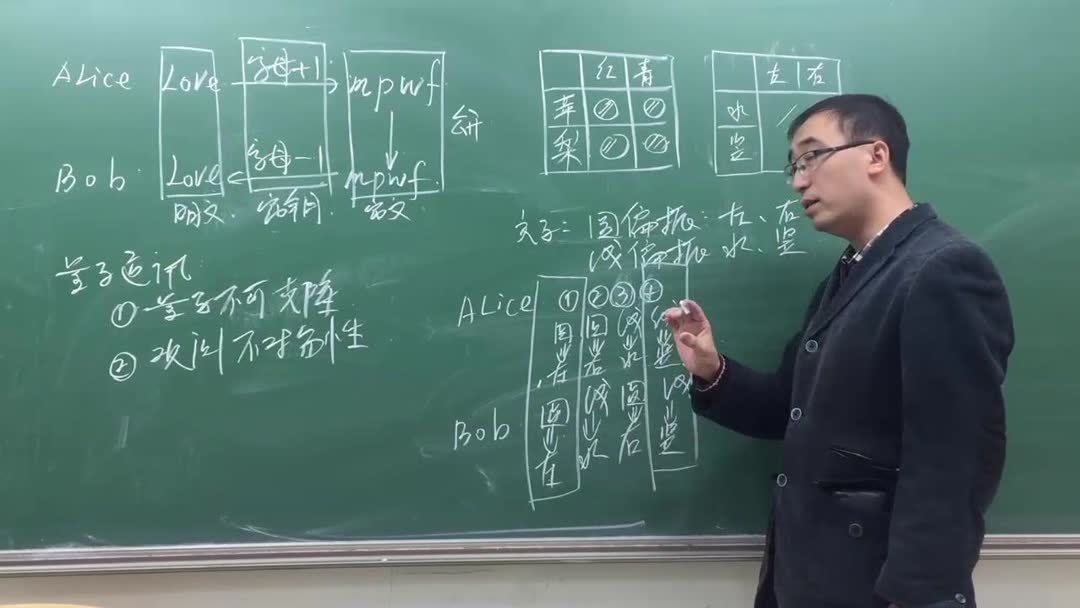 ALice Love 字母+1 mpwf
Bob Love 字母-1 mpwf
明文 密钥 密文
量子通讯
① 量子不可克隆
② 收 不对易性
红 青
苹
梨
左 右
水
竖
光子= 圆偏振: 左、右
线偏振 水、竖
ALice ① ② ③ ④
圆 圆 线 线
左 右 水 竖
Bob 圆 线 圆 线
左 水 右 竖